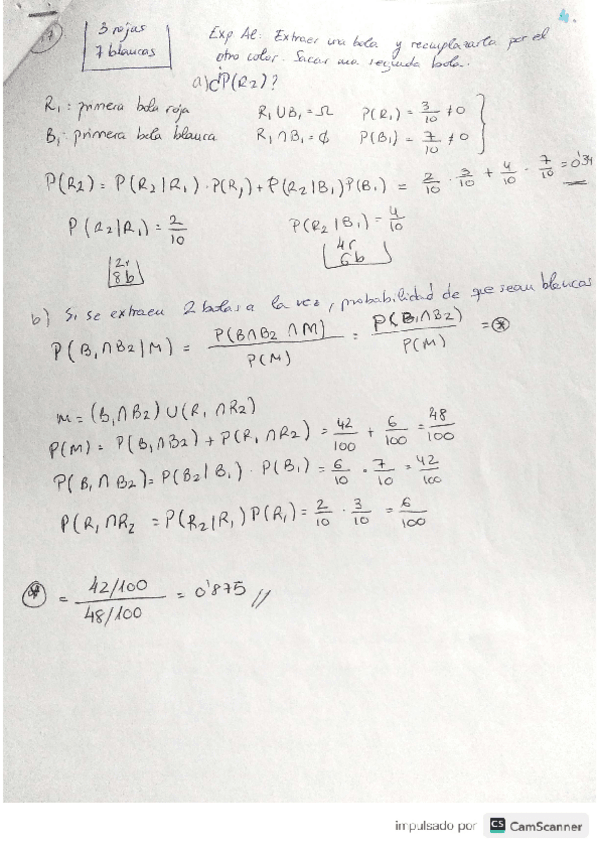 7 3 rojas
7 blancas
Exp. Al: Extraer una bola y reemplazarla por el
otro color. Sacar una segunda bola.
a) ¿P(R2)?
R₁: primera bola roja R₁ ∪ B₁ = Ω P(R₁) = 3/10 ≠ 0
B₁: primera bola blanca R₁ ∩ B₁ = ∅ P(B₁) = 7/10 ≠ 0
P(R2) = P(R2|R₁) · P(R₁) + P(R2|B₁) P(B₁) = 2/10 · 3/10 + 4/10 · 7/10 = 0'34
P(R2|R₁) = 2/10 P(R2|B₁) = 4/10
2r 4r
8b 6b
b) Si se extraen 2 bolas a la vez, probabilidad de que sean blancas
P(B₁∩B2|M) = P(B∩B2∩M)/P(M) = P(B₁∩B2)/P(M) = *
M = (B₁∩B2) ∪ (R₁∩R2)
P(M) = P(B₁∩B2) + P(R₁∩R2) = 42/100 + 6/100 = 48/100
P(B₁∩B2) = P(B2|B₁) · P(B₁) = 6/10 · 7/10 = 42/100
P(R₁∩R2 = P(R2|R₁) P(R₁) = 2/10 · 3/10 = 6/100
* = 42/100 / 48/100 = 0'875 //
impulsado por CS CamScanner